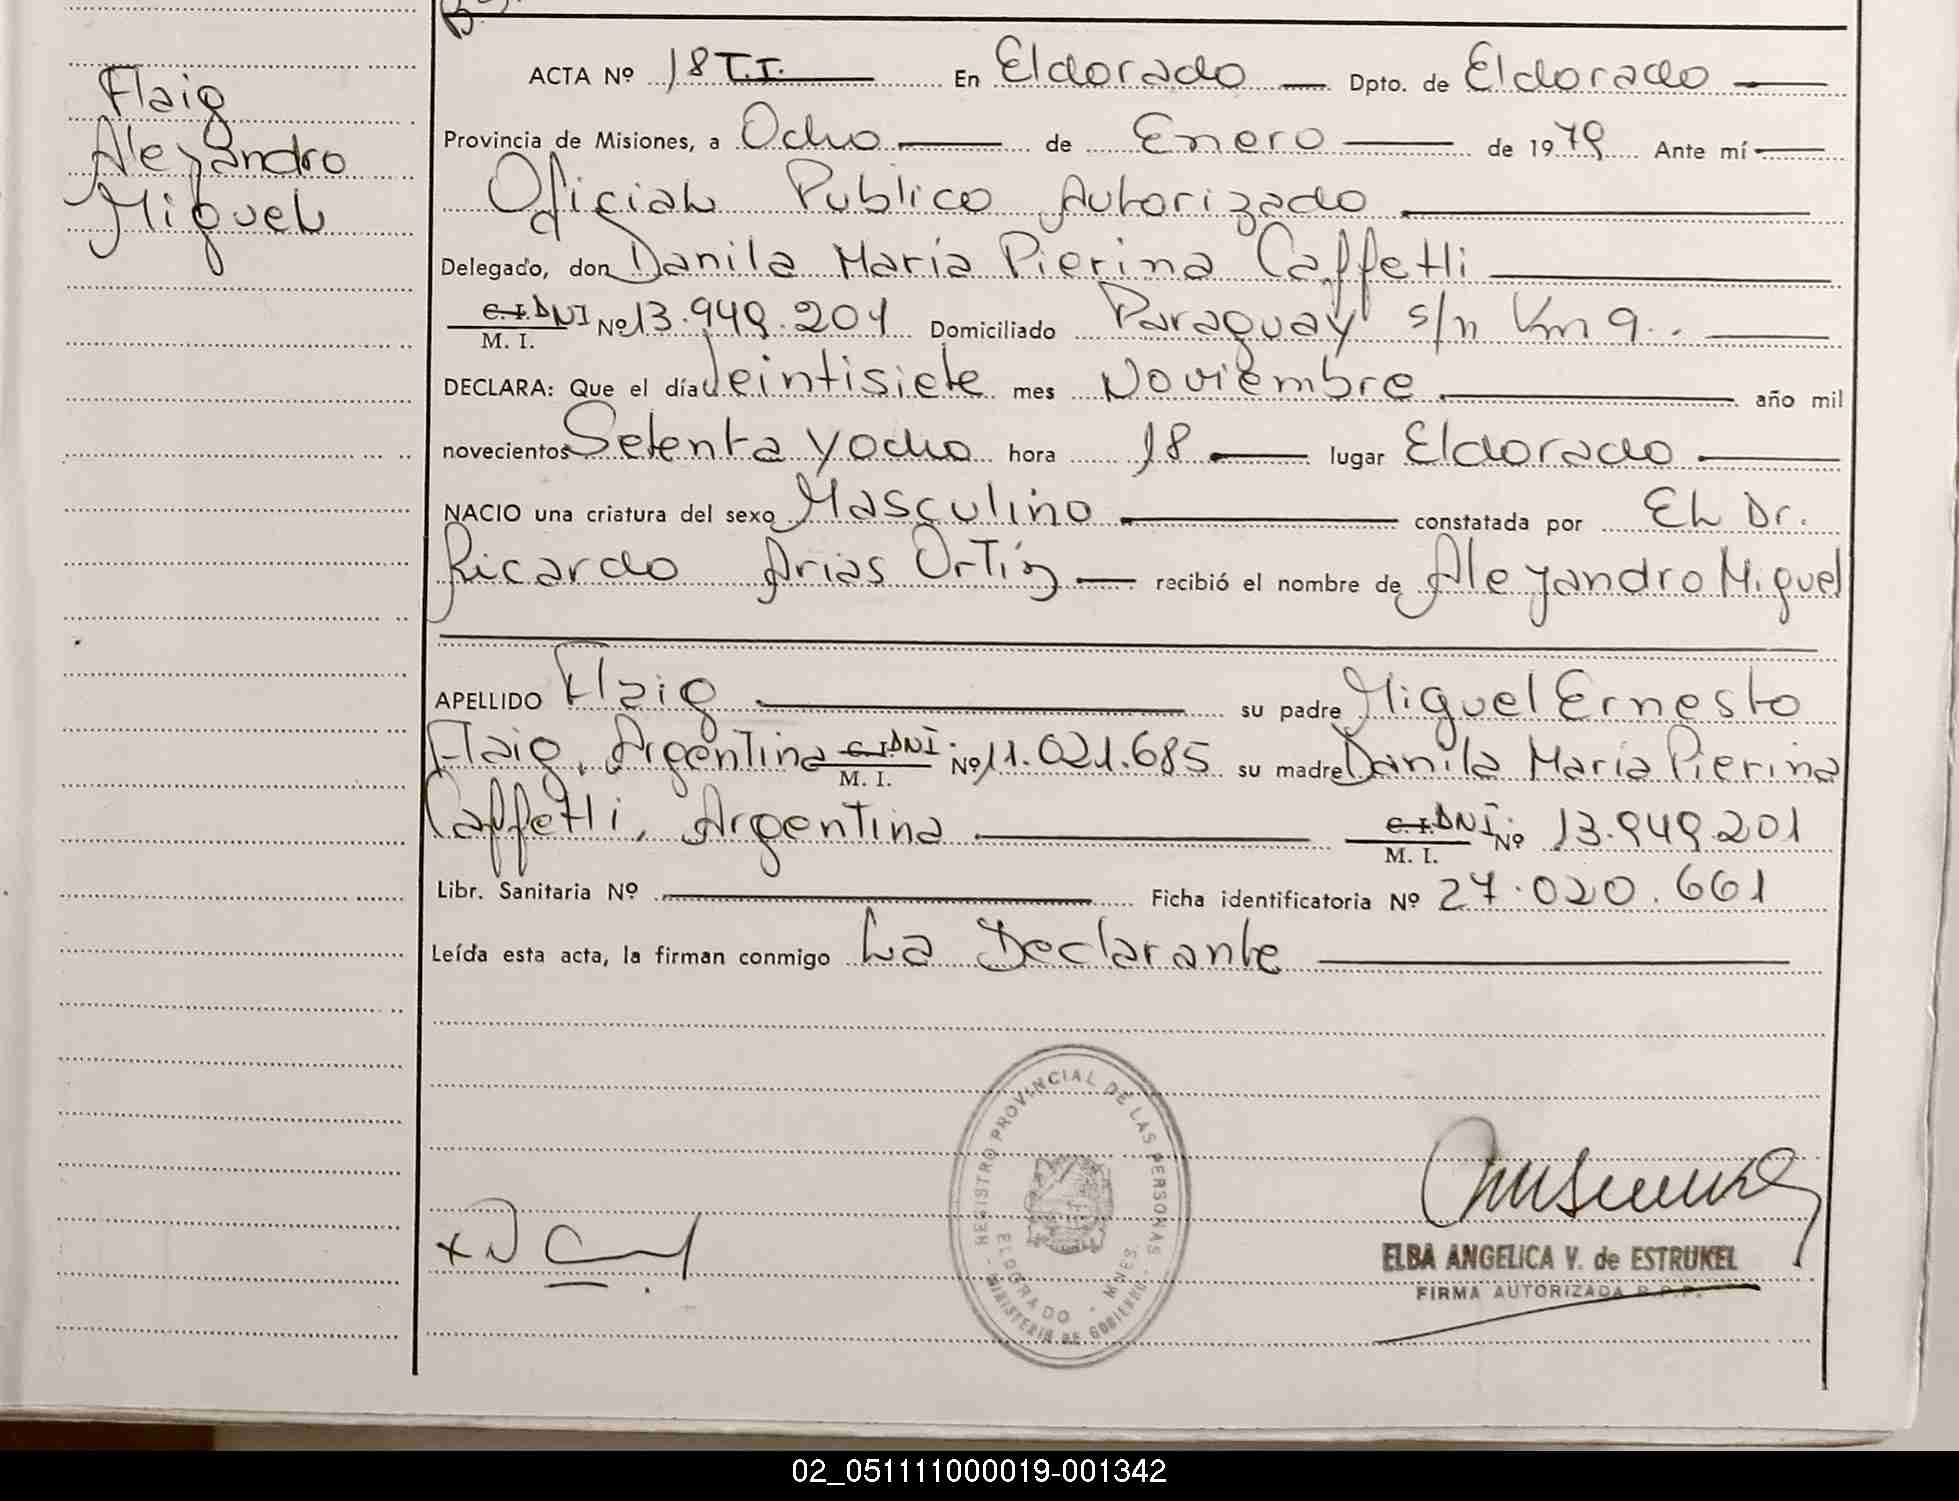 Flaig
Alejandro
Miguel
ACTA Nº 18 T.I. En Eldorado Dpto. de Eldorado
Provincia de Misiones, a Ocho de Enero de 1979 Ante mí
Oficial Publico Autorizado
Delegado, don Danila María Pierina Caffetti
C.I. DNI M. I. Nº 13.949.201 Domiciliado Paraguay s/n Km 9
DECLARA: Que el día Veintisiete mes Noviembre año mil
novecientos Setenta y ocho hora 18 lugar Eldorado
NACIO una criatura del sexo Masculino constatada por El Dr.
Ricardo Arias Ortíz recibió el nombre de Alejandro Miguel
APELLIDO Flaig su padre Miguel Ernesto
Flaig, Argentina C.I. DNI M. I. Nº 11.021.685 su madre Danila María Pierina
Caffetti, Argentina C.I. DNI M. I. Nº 13.949.201
Libr. Sanitaria Nº Ficha identificatoria Nº 27.020.661
Leída esta acta, la firman conmigo La Declarante
REGISTRO PROVINCIAL DE LAS PERSONAS
ELDORADO - MNES.
- MINISTERIO DE GOBIERNO -
ELBA ANGELICA V. de ESTRUKEL
FIRMA AUTORIZADA R.P.P.
02_051111000019-001342